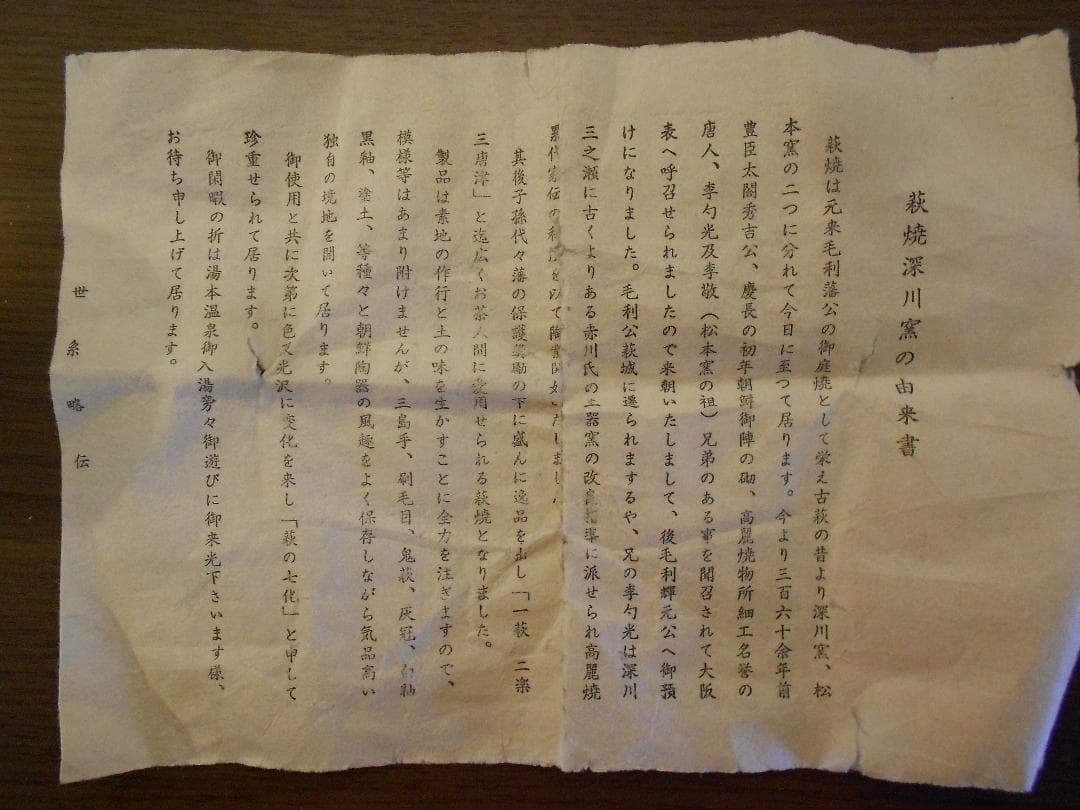 萩焼深川窯の由来書
萩焼は元来毛利藩公の御庭焼として栄え古萩の昔より深川窯、松
本窯の二つに分れて今日に至つて居ります。今より三百六十余年前
豊臣太閤秀吉公、慶長の初年朝鮮御陣の砌、高麗焼物所細工名誉の
唐人、李勺光及李敬（松本窯の祖）兄弟のある事を聞召されて大阪
表へ呼召せられましたので来朝いたしまして、後毛利輝元公へ御預
けになりました。毛利公萩城に遷られまするや、兄の李勺光は深川
三之瀬に古くよりある赤川氏の土器窯の改良指導に派せられ高麗焼
累代家伝の を以て陶業開始いたしました
其後子孫代々藩の保護奨励の下に盛んに逸品を出し「一萩　二楽
三唐津」と迄広くお茶人間に愛用せられる萩焼となりました。
製品は素地の作行と土の味を生かすことに全力を注ぎますので、
模様等はあまり附けませんが、三島手、刷毛目、鬼萩、灰冠、白釉
黒釉、塗土、等種々と朝鮮陶器の風趣をよく保存しながら気品高い
独自の境地を開いて居ります。
御使用と共に次第に色又光沢に変化を来し「萩の七化」と申して
珍重せられて居ります。
御閑暇の折は湯本温泉御入湯旁々御遊びに御来光下さいます様、
お待ち申し上げて居ります。
世系略伝